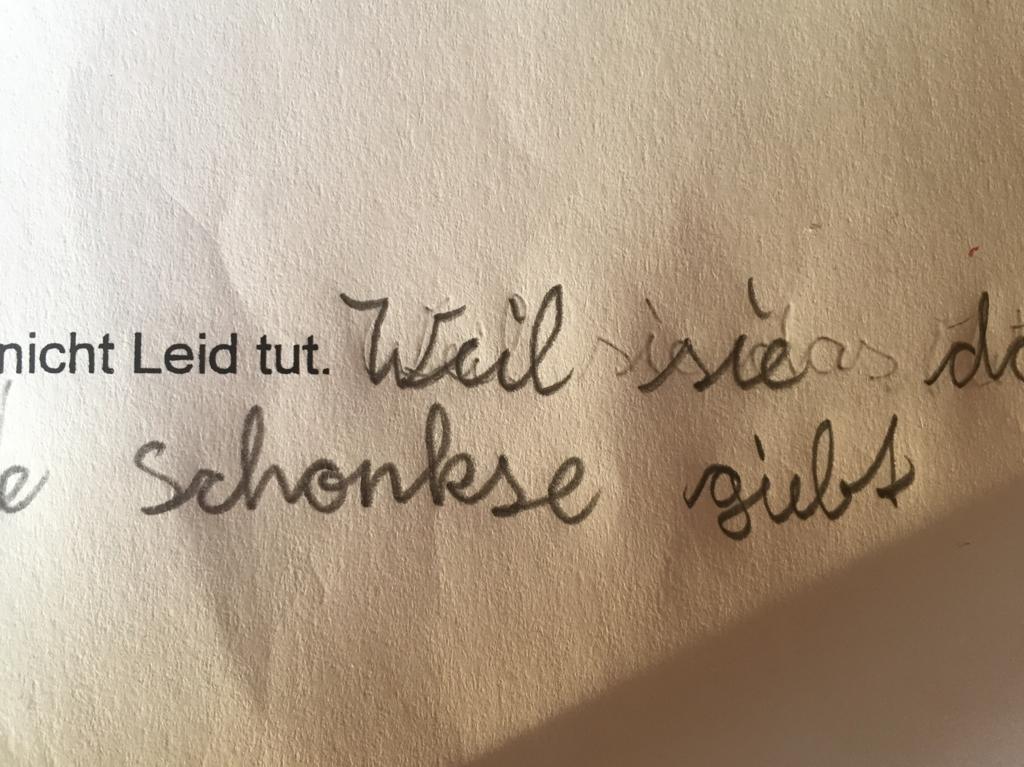 nicht Leid tut. Weil sie
e Schonkse giebt